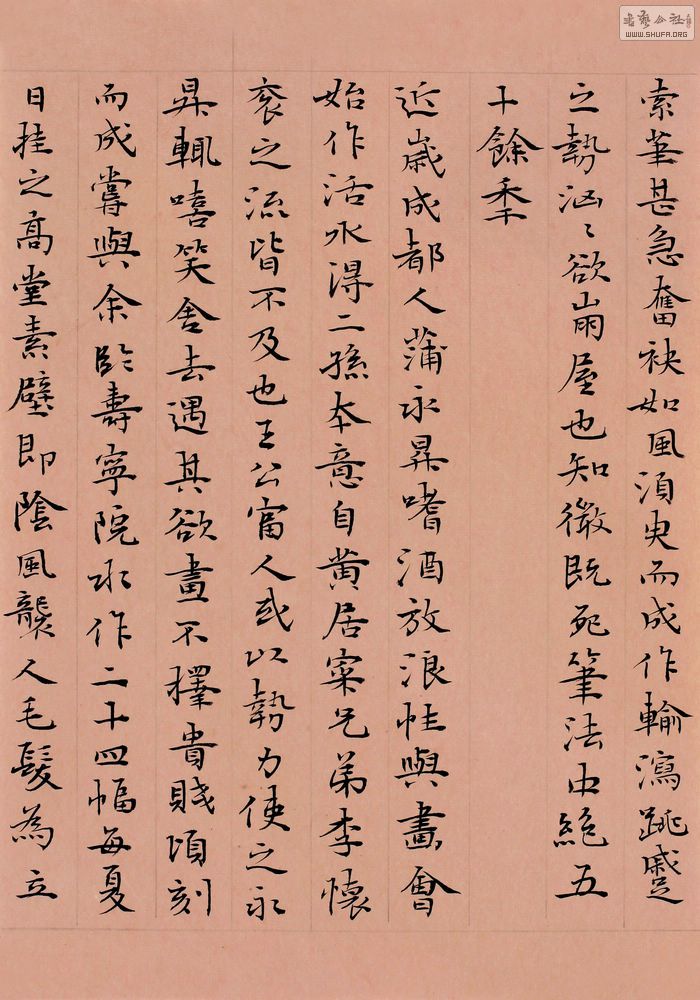 索筆甚急奮袂如風須臾而成作輸瀉跳蹙
之勢洶〻欲崩屋也知微既死筆法中絕五
十餘年
近嵗成都人蒲永昇嗜酒放浪性與畫會
始作活水得二孫本意自黄居寀兄弟李懷
衮之流皆不及也王公富人或以勢力使之永
昇輒嘻笑舍去遇其欲畫不擇貴賤頃刻
而成嘗與余臨壽寧院水作二十四幅每夏
日挂之高堂素壁即陰風襲人毛髮為立
WWW.SHUFA.ORG